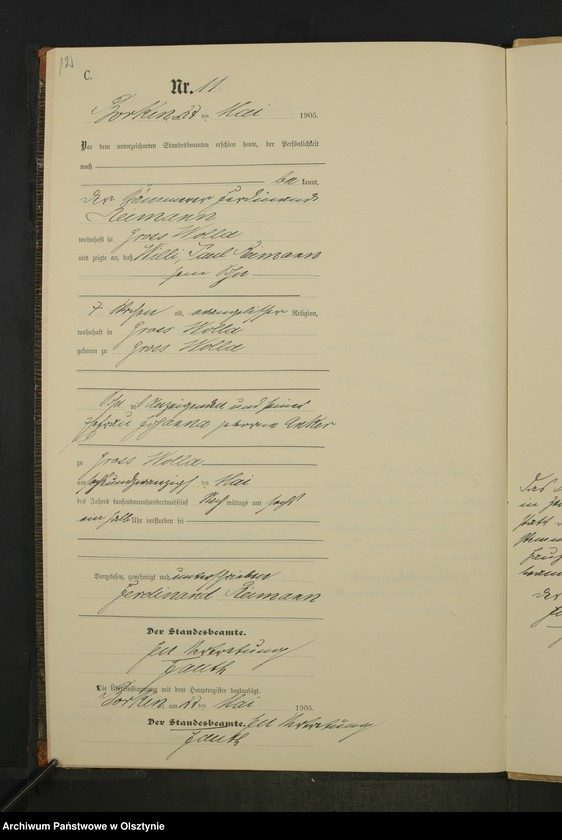 121
C.
Nr. 11
Borken am 27 ten Mai 1905.
Vor dem unterzeichneten Standesbeamten erschien heute, der Persönlichkeit
nach
be kannt,
der Kämmerer Ferdinand
Reimann
wohnhaft in Gross Wolla
und zeigte an, daß Willi, Paul Reimann
sein Sohn
7 Wochen alt, evangelischer Religion,
wohnhaft in Gross Wolla
geboren zu Gross Wolla
Sohn des Anzeigenden und seiner
Ehefrau Johanna geborene
zu Gross Wolla
am sechsundzwanzigsten Mai
des Jahres tausendneunhundertundfünf Nach mittags um
ein halb Uhr verstorben sei
Vorgelesen, genehmigt und unterschrieben
Ferdinand Reimann
Der Standesbeamte.
In Vertretung
Die Übereinstimmung mit dem Hauptregister beglaubigt.
Borken am 27 ten Mai 1905.
Der Standesbeamte. In Vertretung
Das
in
der
Archiwum Państwowe w Olsztynie